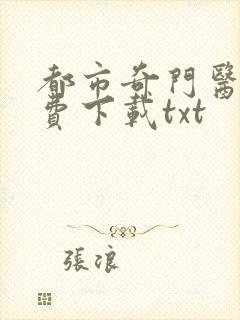 都市奇門醫
費下載txt
張浪